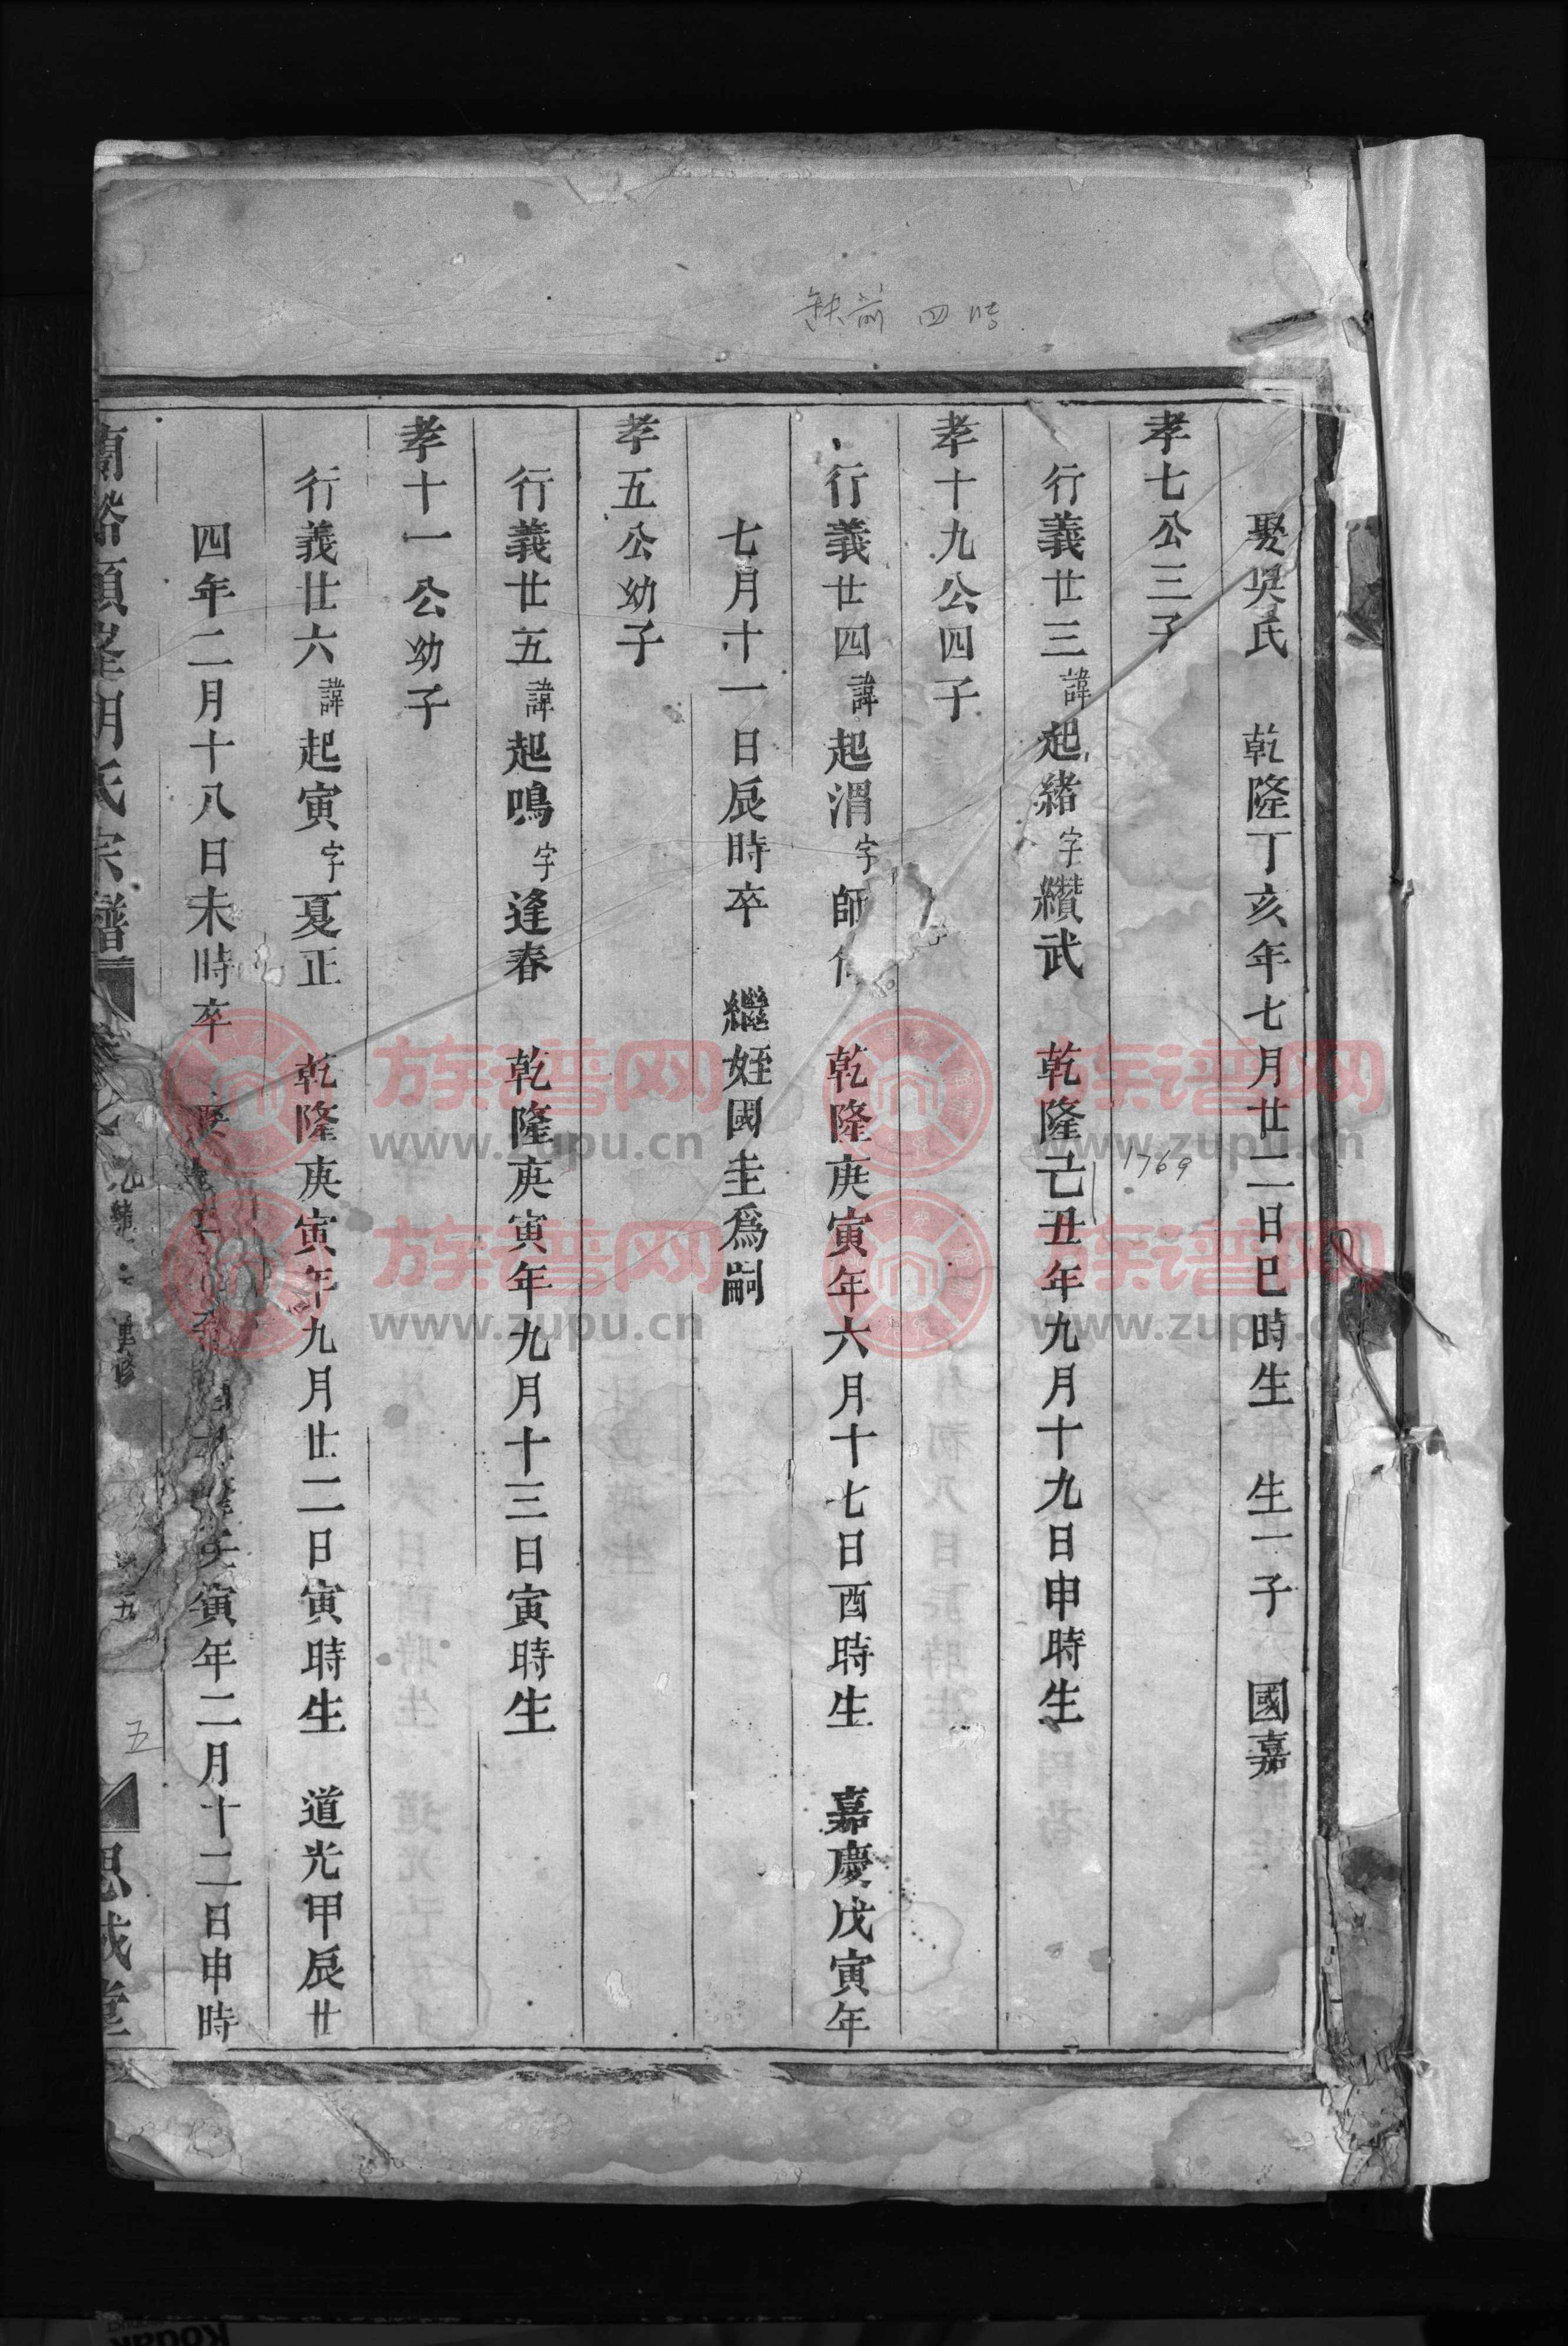 缺前四
娶吳氏 乾隆丁亥年七月廿二日巳時生 生一子 國嘉
孝七公三子
行義廿三諱起緒字纘武 乾隆己丑年九月十九日申時生
1769
孝十九公四子
行義廿四諱起渭字師 乾隆庚寅年六月十七日酉時生 嘉慶戊寅年
七月十一日辰時卒 繼姪國圭爲嗣
孝五公幼子
行義廿五諱起鳴字逢春 乾隆庚寅年九月十三日寅時生
孝十一公幼子
行義廿六諱起寅字夏正 乾隆庚寅年九月廿二日寅時生 道光甲辰廿
四年二月十八日未時卒 寅年二月十二日申時
胡氏宗譜 重修 五 思成堂
族谱网
www.zupu.cn
族谱网
www.zupu.cn
族谱网
www.zupu.cn
族谱网
www.zupu.cn
Kodak